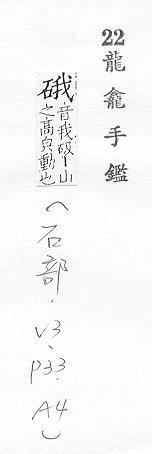 22龍龕手鑑
硪音我砐〡山之高皃動也
(石部.V3.P33.A4)